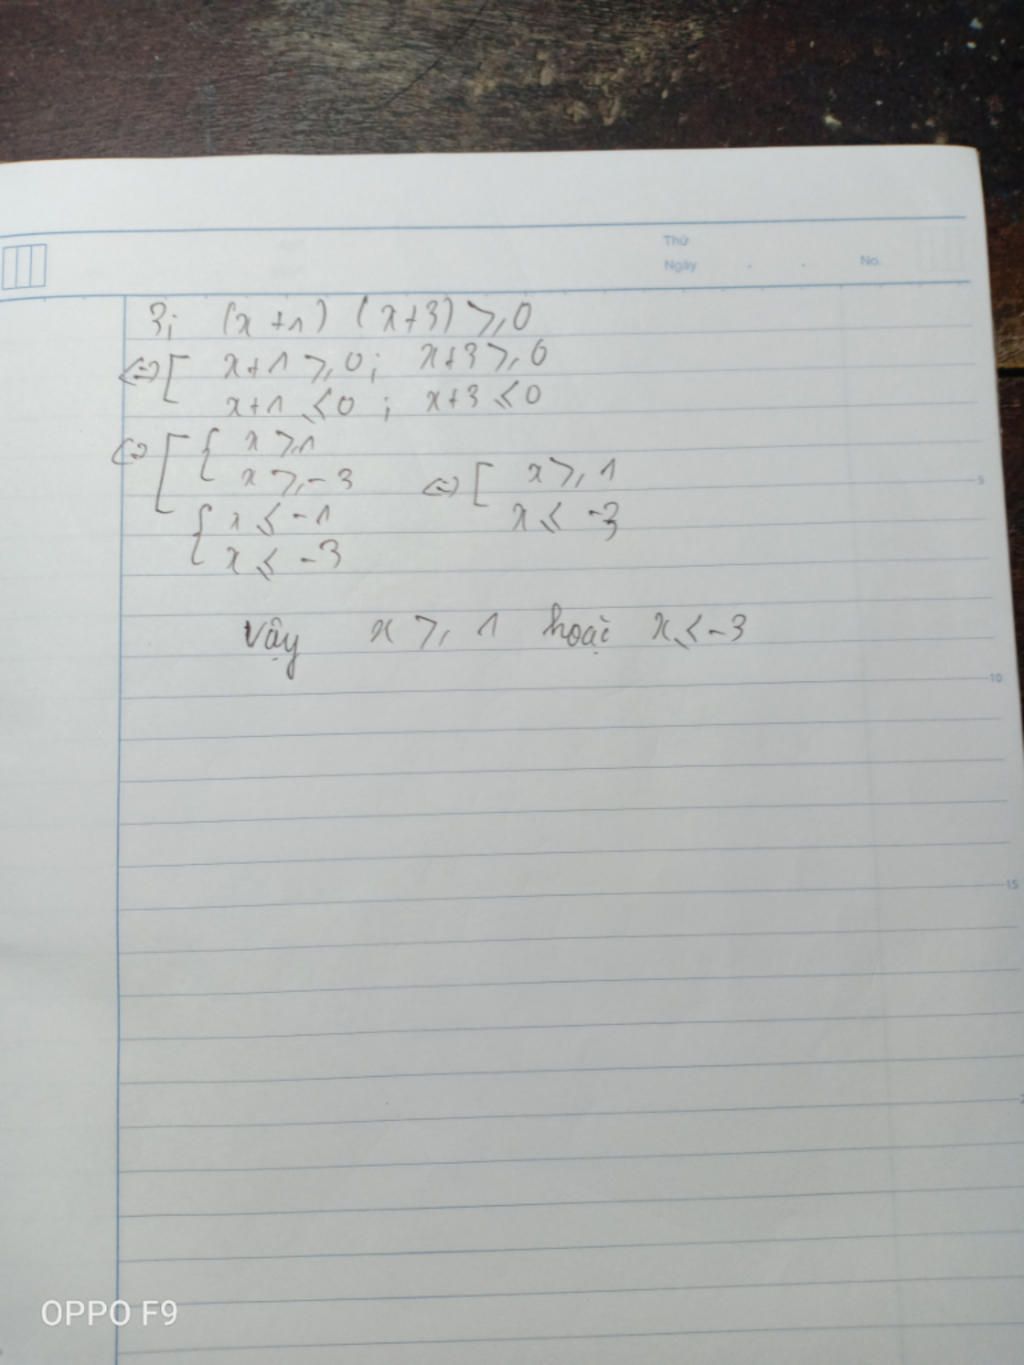 Thứ
Ngày . . No.
3; (x+1) (x+3) ⩾ 0
⇔ [ x+1 ⩾ 0; x+3 ⩾ 0
x+1 ⩽ 0 ; x+3 ⩽ 0
⇔ [ { x ⩾ 1
x ⩾ -3 ⇔ [ x ⩾ 1
{ x ⩽ -1 x ⩽ -3
x ⩽ -3
Vậy x ⩾ 1 hoặc x ⩽ -3
5
10
15
OPPO F9